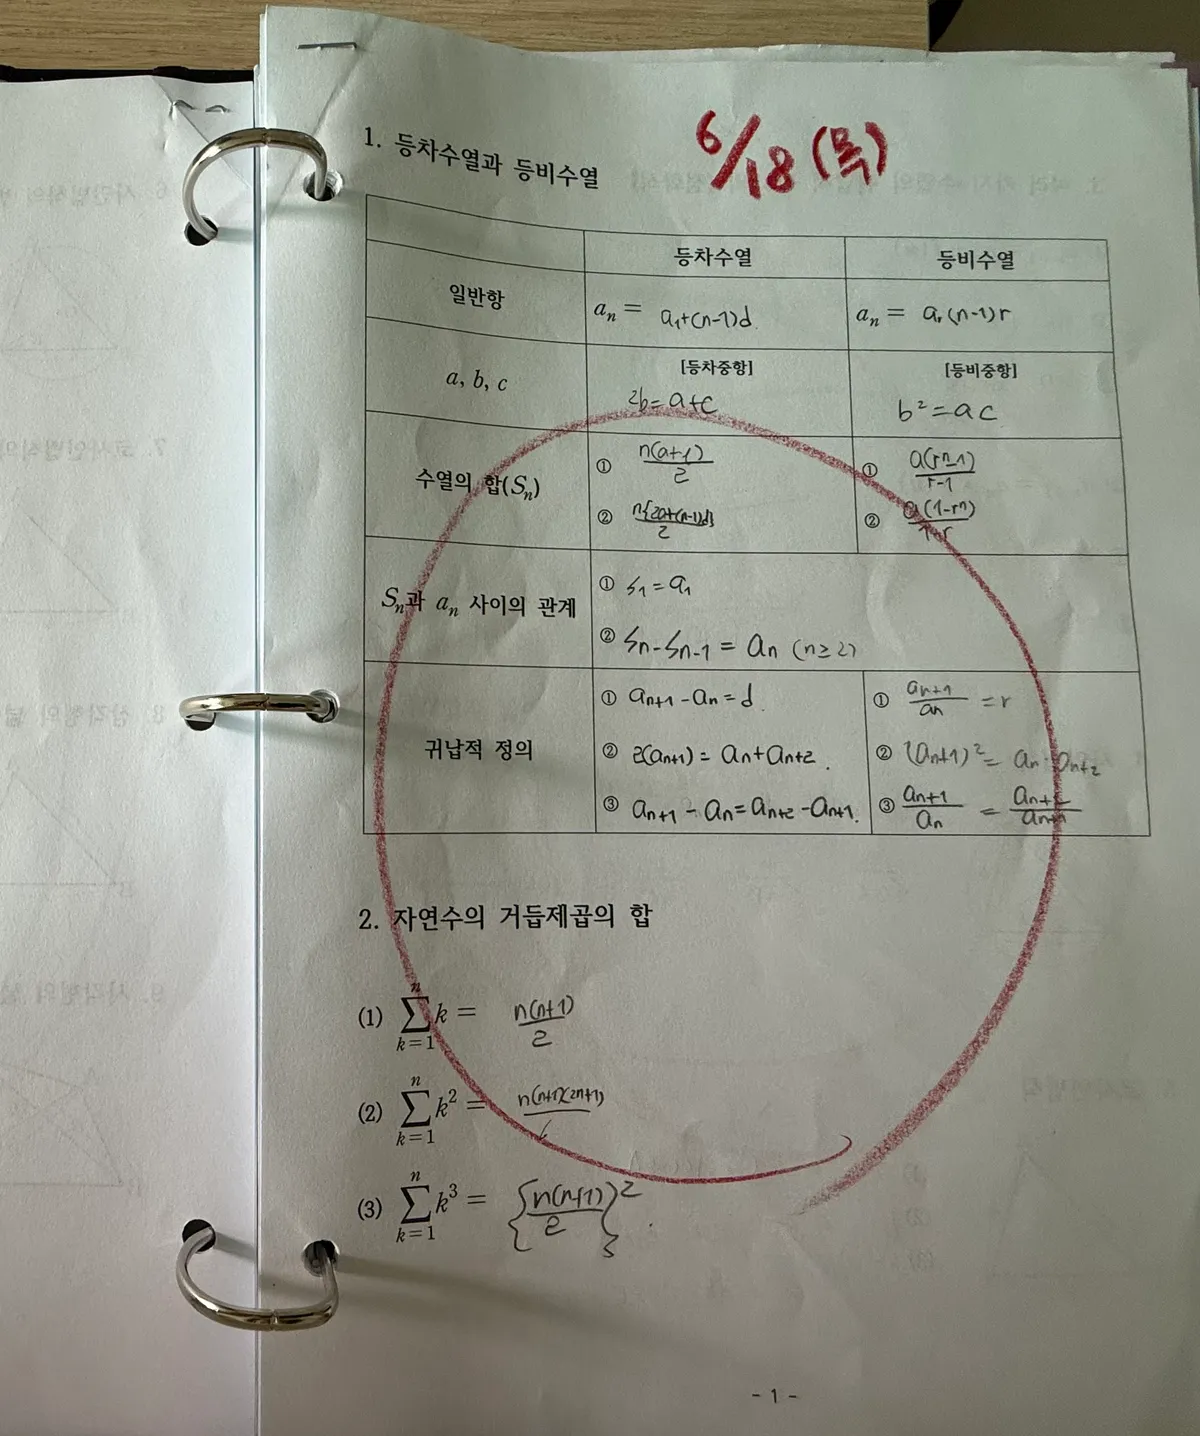 6/18 (목)
1. 등차수열과 등비수열
등차수열 등비수열
일반항 aₙ = a₁+(n-1)d aₙ = a₁(n-1)r
a, b, c [등차중항] [등비중항]
2b=a+c b²=ac
수열의 합(Sₙ)
① n(a+l)/2 ① a(rⁿ-1)/r-1
② n{2a+(n-1)d}/2 ② a(1-rⁿ)/1-r
Sₙ과 aₙ 사이의 관계
① S₁=a₁
② Sₙ-Sₙ₋₁=aₙ (n≥2)
귀납적 정의
① aₙ₊₁-aₙ=d. ① aₙ₊₁/aₙ=r
② 2(aₙ₊₁)=aₙ+aₙ₊₂. ② (aₙ₊₁)²=aₙ·aₙ₊₂
③ aₙ₊₁-aₙ=aₙ₊₂-aₙ₊₁. ③ aₙ₊₁/aₙ=aₙ₊₂/aₙ₊₁
2. 자연수의 거듭제곱의 합
(1) ∑ₖ₌₁ⁿ k = n(n+1)/2
(2) ∑ₖ₌₁ⁿ k² = n(n+1)(2n+1)/6
(3) ∑ₖ₌₁ⁿ k³ = {n(n+1)/2}².
- 1 -